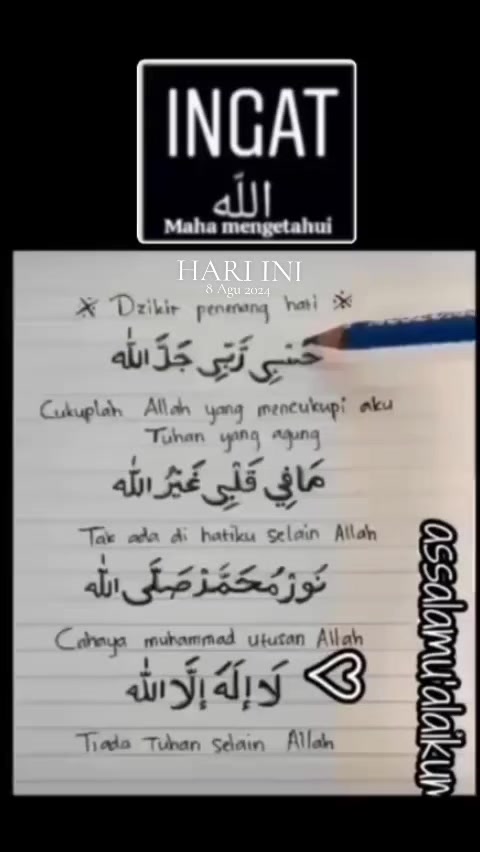 INGAT
اللّه
Maha mengetahui
HARI INI
8 Agu 2024
※ Dzikir penenang hati ※
حَسْبِي رَبِّي جَلَّ اللّٰه
Cukuplah Allah yang mencukupi aku
Tuhan yang agung
مَا فِي قَلْبِي غَيْرُ اللّٰه
Tak ada di hatiku selain Allah
نُورْ مُحَمَّدْ صَلَّى اللّٰه
Cahaya muhammad utusan Allah
لَا إِلَهَ إِلَّا اللّٰه
Tiada Tuhan selain Allah
assalamu'alaikum